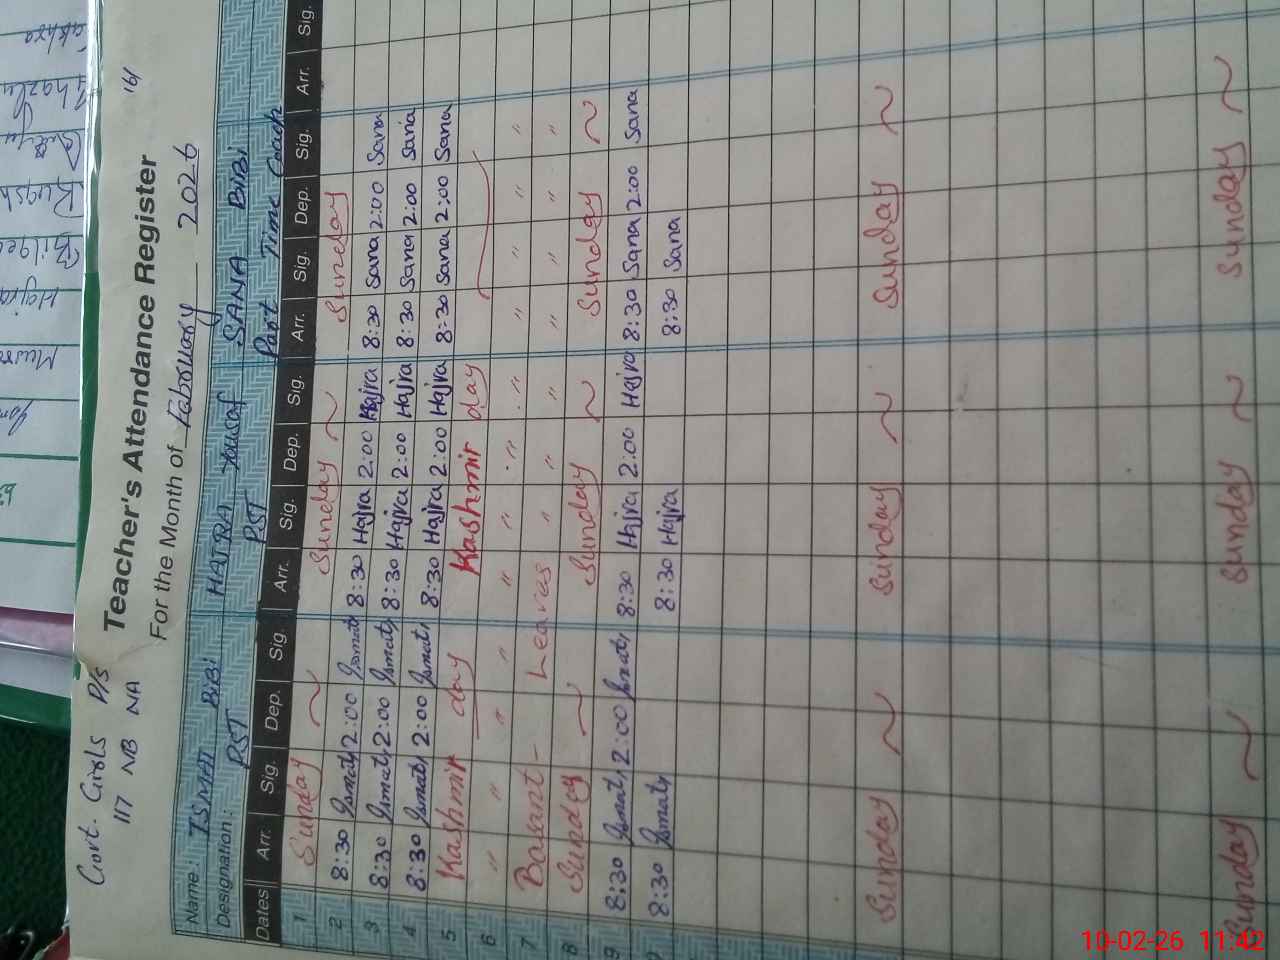 Govt. Girls P/S
117 NB NA
Teacher's Attendance Register
161
For the Month of February 2026
Name: ISMAT BiBi HAJRA Yousaf SANA BiBi
Designation: PST PST Part Time Coach
Dates Arr. Sig. Dep. Sig. Arr. Sig. Dep. Sig. Arr. Sig. Dep. Sig. Arr. Sig.
1 Sunday ~ Sunday ~ Sunday
2 8:30 Ismat 2:00 Ismat 8:30 Hajra 2:00 Hajra 8:30 Sana 2:00 Sana
3 8:30 Ismat 2:00 Ismat 8:30 Hajra 2:00 Hajra 8:30 Sana 2:00 Sana
4 8:30 Ismat 2:00 Ismat 8:30 Hajra 2:00 Hajra 8:30 Sana 2:00 Sana
5 Kashmir day Kashmir day
6 " " " " " " " " " " " "
7 Basant - Leaves " " " " " " "
8 Sunday ~ Sunday ~ Sunday ~
9 8:30 Ismat 2:00 Ismat 8:30 Hajra 2:00 Hajra 8:30 Sana 2:00 Sana
8:30 Ismat 8:30 Hajra 8:30 Sana
Sunday ~ Sunday ~ Sunday ~
Sunday ~ Sunday ~ Sunday ~
Hajra
10-02-26 11:42